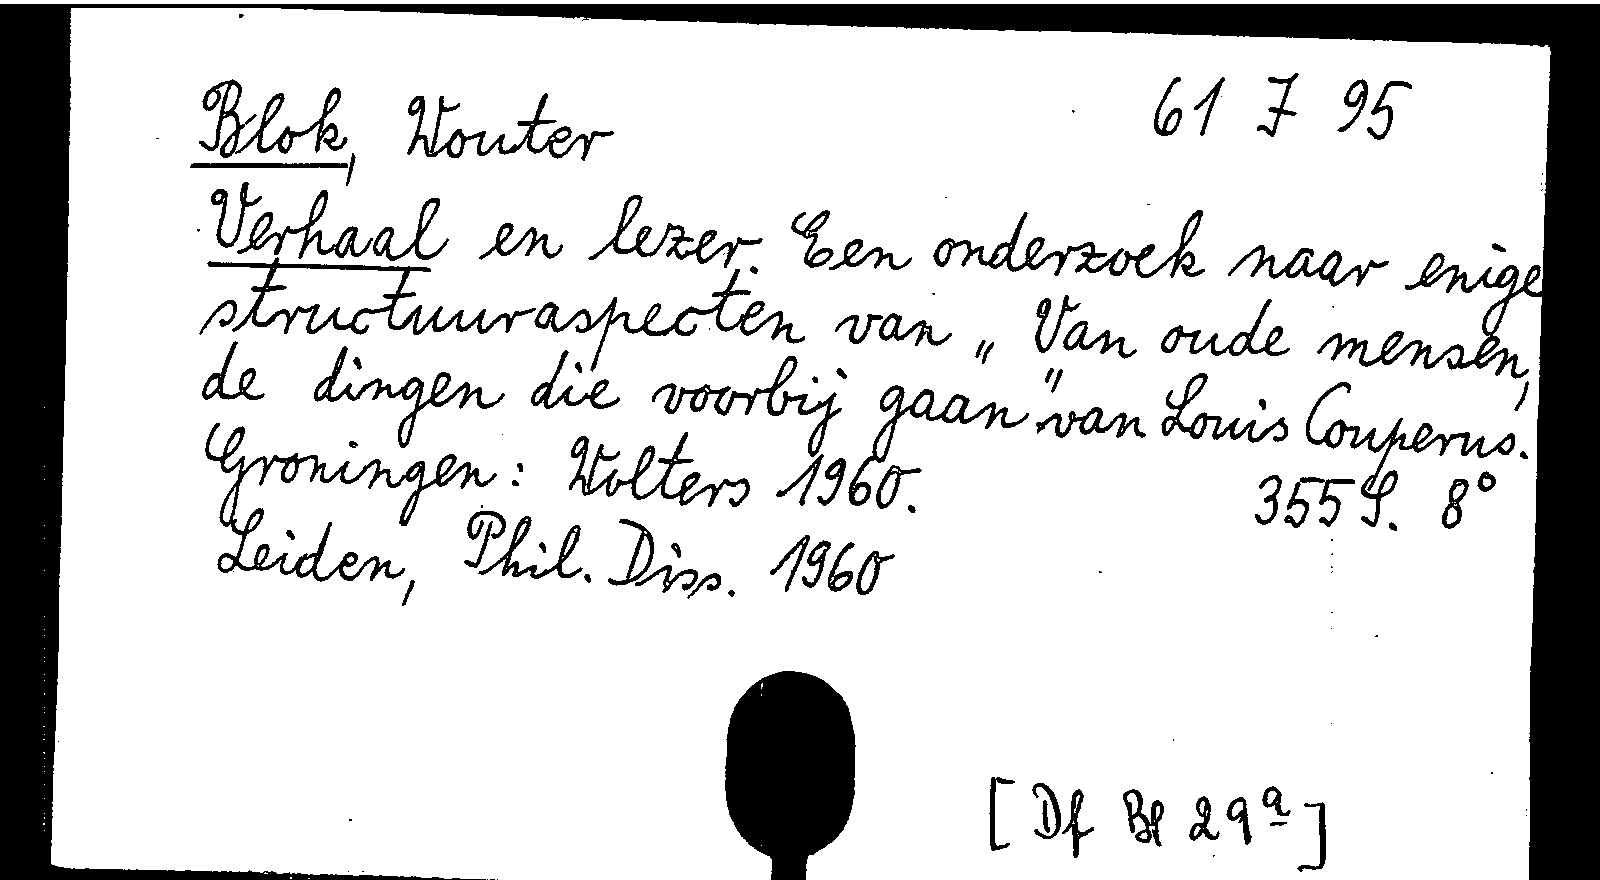 Blok, Wouter 61 J 95
Verhaal en lezer. Een onderzoek naar enige
structuuraspecten van „Van oude mensen,
de dingen die voorbij gaan" van Louis Couperus.
Groningen: Wolters 1960. 355 S. 8°
Leiden, Phil. Diss. 1960
[Df Bl 29a]